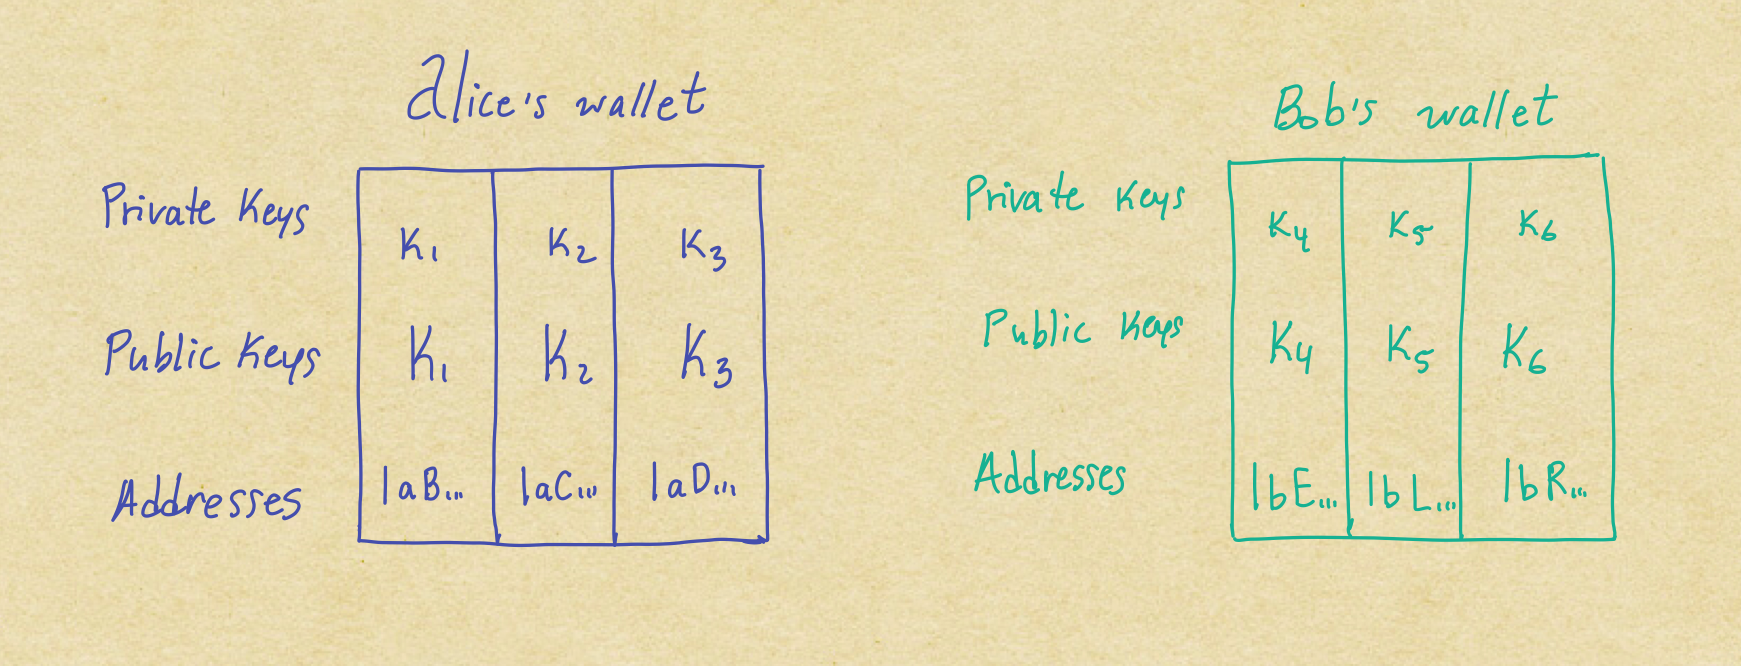 Alice's wallet
Private Keys k1 k2 k3
Public Keys K1 K2 K3
Addresses 1aB... 1aC... 1aD...
Bob's wallet
Private Keys k4 k5 k6
Public Keys K4 K5 K6
Addresses 1bE... 1bL... 1bR...